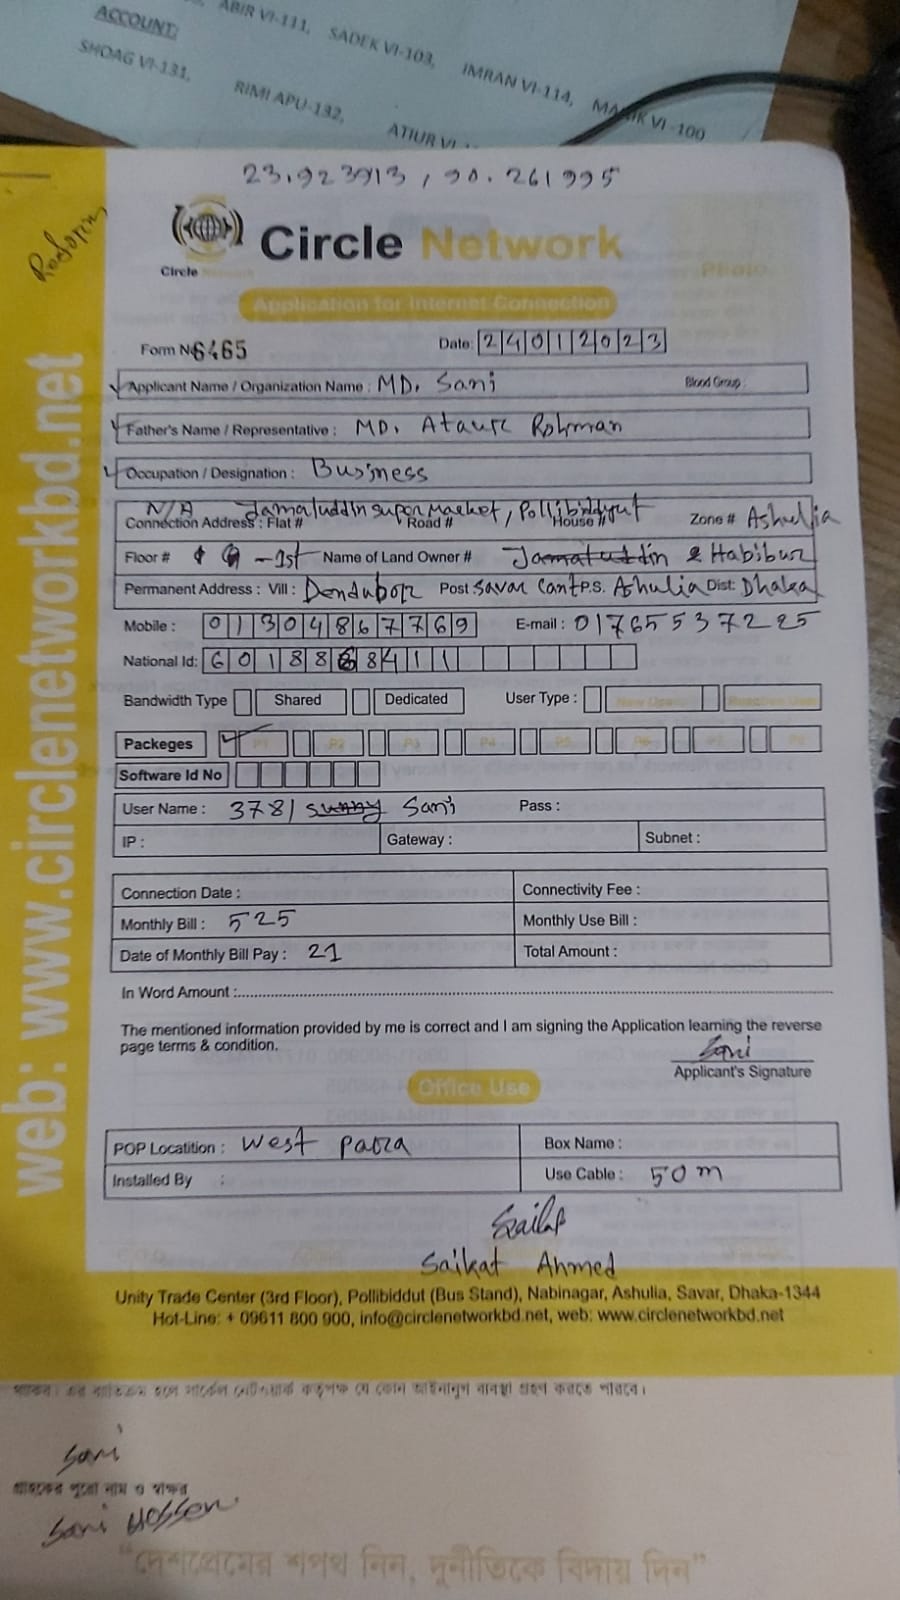 ABIR VI-111, SADEK VI-103, IMRAN VI-114, MANIK VI-100
ACCOUNT:
SHOAG VI-131, RIMI APU-132, ATIUR VI
23.923913, 90.261995
Circle
Circle Network
Photo
Application for Internet Connection
Form No 6465
Date: 24012023
Applicant Name / Organization Name : MD. Sani Blood Group :
Father's Name / Representative : MD. Ataur Rohman
Occupation / Designation : Business
N/A Jamaluddin super Market, Pollibiddyut
Connection Address : Flat # Road # House # Zone # Ashulia
Floor # 1st Name of Land Owner # Jamaluddin & Habibur
Permanent Address : Vill : Dendabor Post Savar Cant P.S. Ashulia Dist: Dhaka
Mobile : 01304867769 E-mail : 01765537225
National Id: 6018868411
Bandwidth Type Shared Dedicated User Type :
Packeges P1 P2 P3 P4 P5 P6 P7 P8
Software Id No
User Name : 3781 sunny Sani Pass :
IP : Gateway : Subnet :
Connection Date : Connectivity Fee :
Monthly Bill : 525 Monthly Use Bill :
Date of Monthly Bill Pay : 21 Total Amount :
In Word Amount :
The mentioned information provided by me is correct and I am signing the Application learning the reverse
page terms & condition.
Sani
Applicant's Signature
Office Use
POP Locatition : West Para Box Name :
Installed By : Use Cable : 50 m
Saikat Ahmed
Unity Trade Center (3rd Floor), Pollibiddut (Bus Stand), Nabinagar, Ashulia, Savar, Dhaka-1344
Hot-Line: + 09611 800 900, info@circlenetworkbd.net, web: www.circlenetworkbd.net
web: www.circlenetworkbd.net
Sani
গ্রাহকের পুরো নাম ও স্বাক্ষর
Sani Hossen
"দেশপ্রেমের শপথ নিন, দূর্নীতিকে বিদায় দিন"